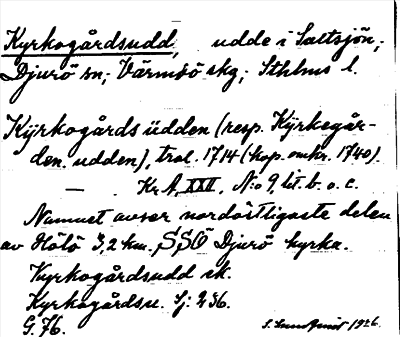 Kyrkogårdsudd, udde i Saltsjön,
Djurö sn, Värmdö skg, Sthlms l.
Kÿrkogårds üdden (resp. Kÿrkegår-
den. udden), trol. 1714 (kop. omkr. 1740).
— Kr A, XXII, N:o 9, lit. b. o. c.
Namnet avser nordöstligaste delen
av Hölö 3,2 km. SSÖ Djurö kyrka.
Kyrkogårdsudd sk.
Kyrkogårdsu. Sj: 236.
G. 76. 1926.